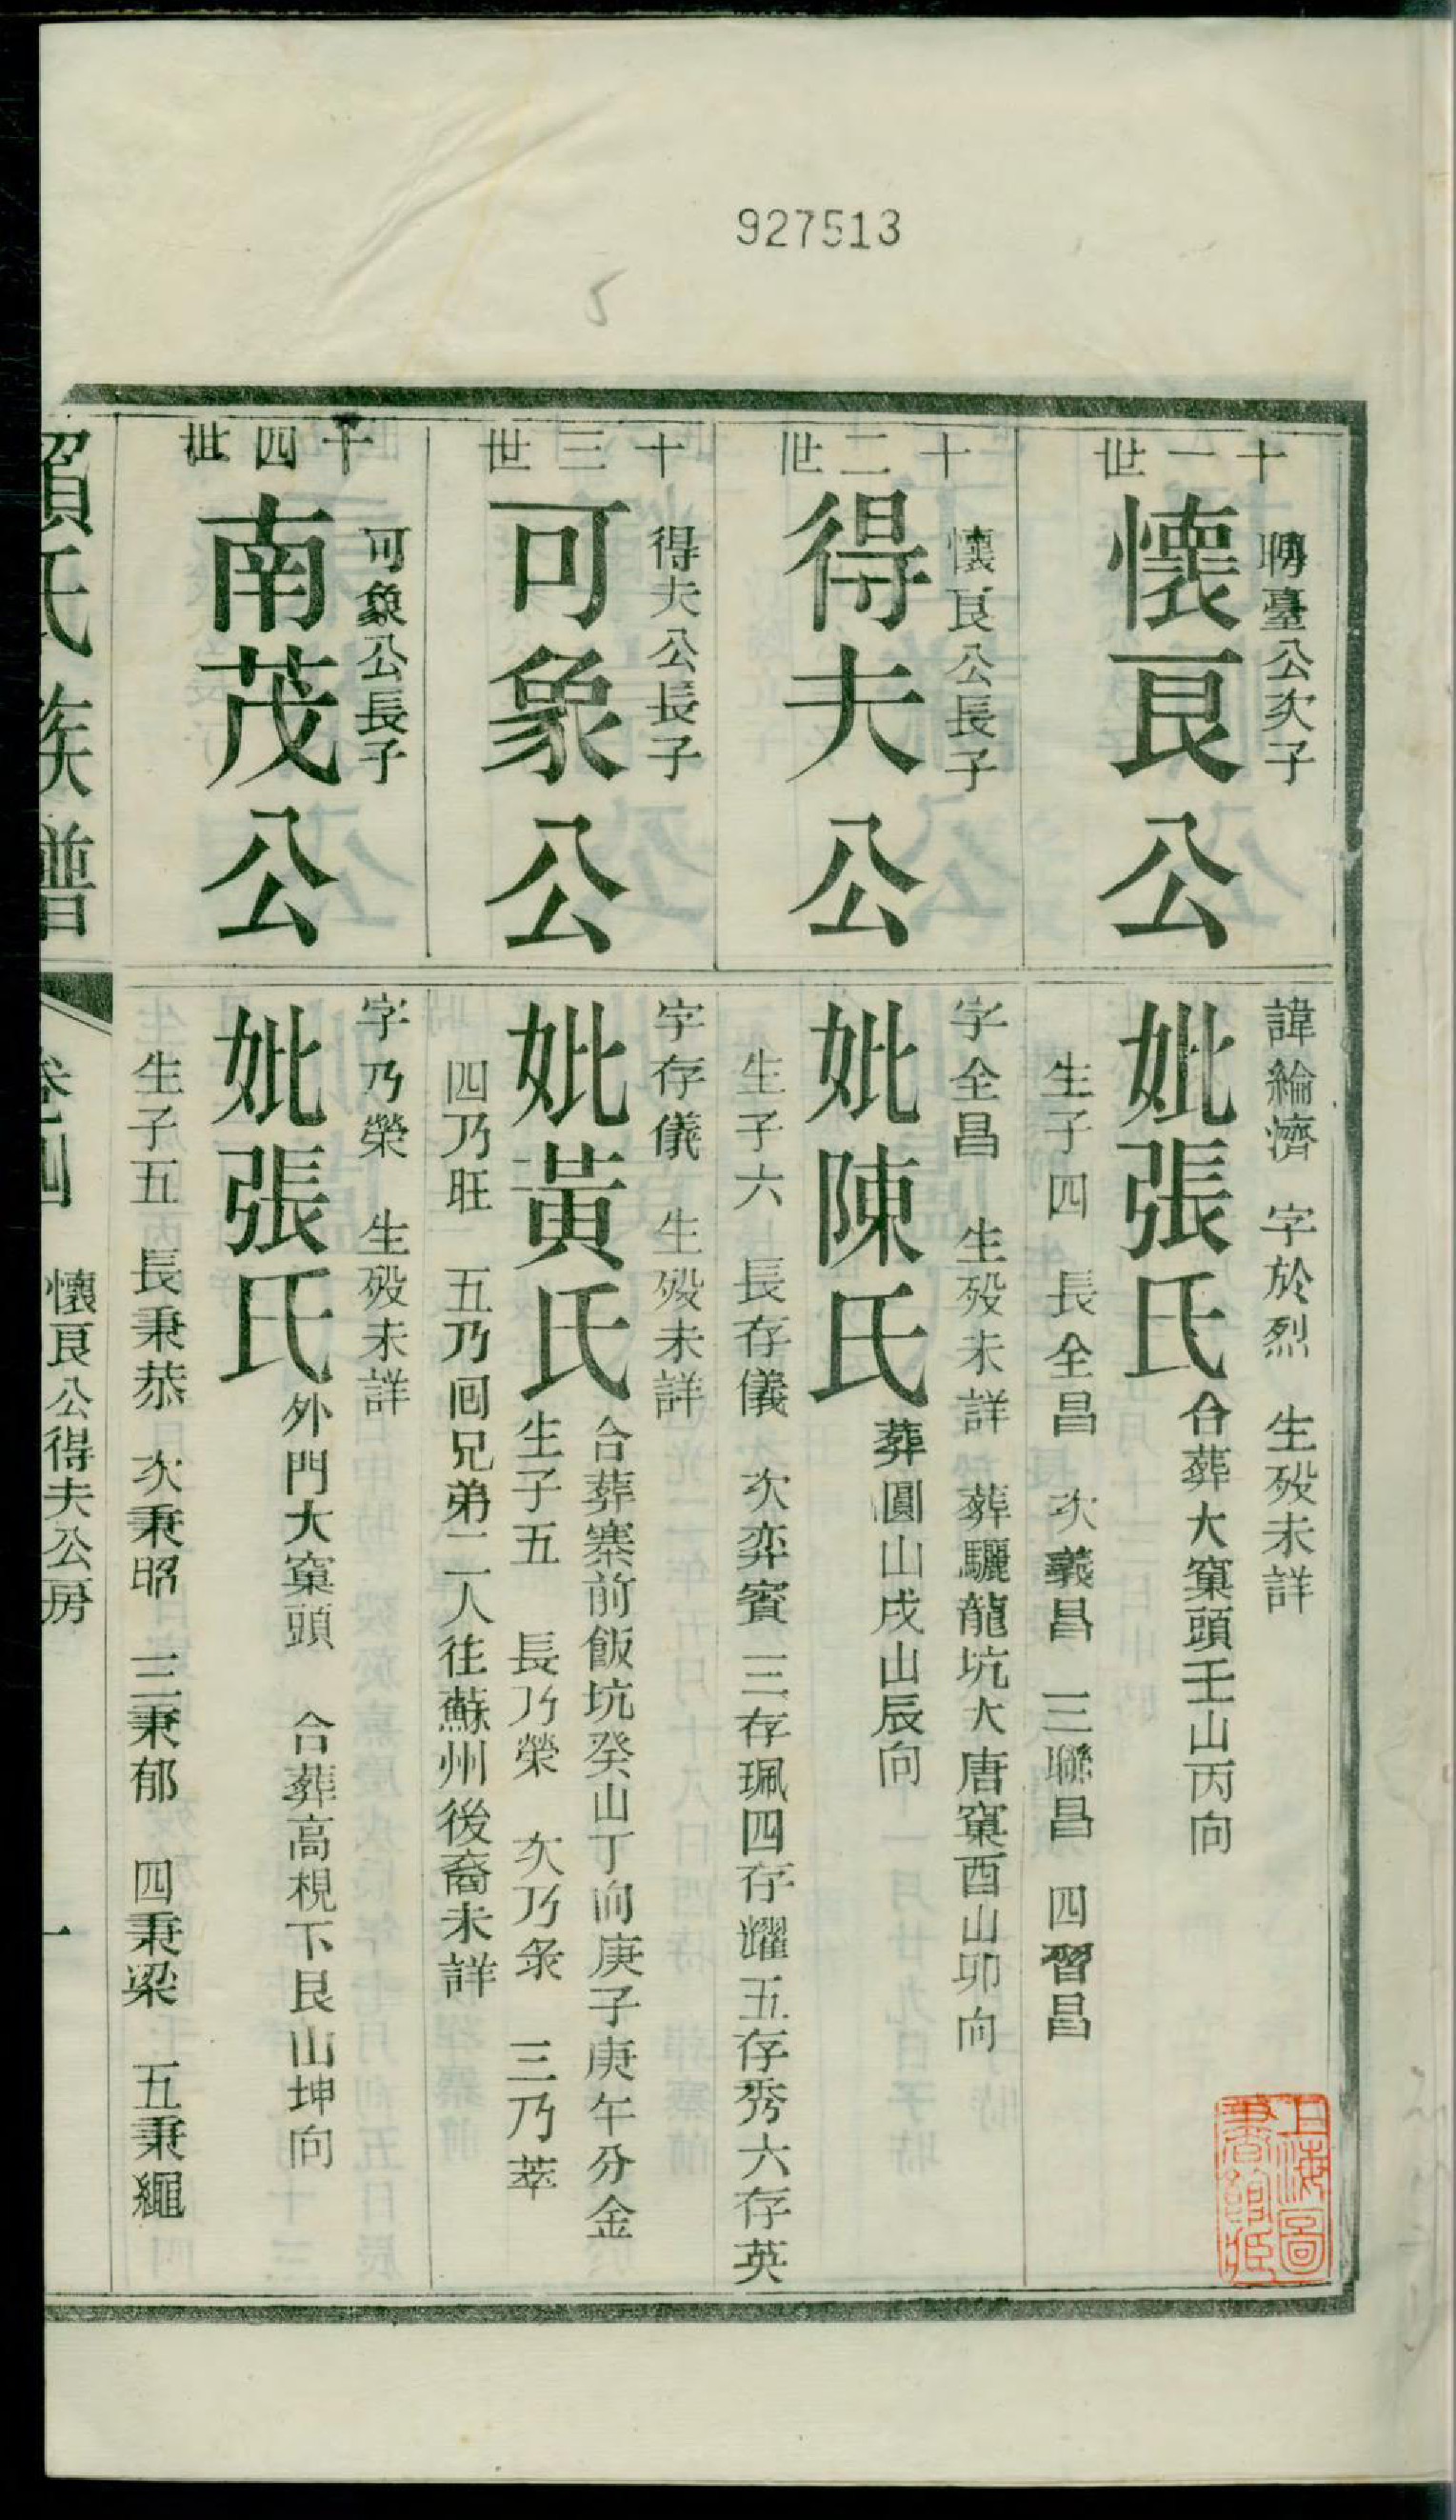 927513
十一世
騁臺公次子
懷良公
諱綸濟 字於烈 生歿未詳
妣張氏 合葬大窠頭壬山丙向
生子四 長全昌 次義昌 三聯昌 四習昌
十二世
懷良公長子
得夫公
字全昌 生歿未詳 葬驪龍坑大唐窠酉山卯向
妣陳氏 葬圓山戌山辰向
生子六 長存儀 次弈賓 三存珮 四存耀 五存秀 六存英
十三世
得夫公長子
可象公
字存儀 生歿未詳
妣黃氏 合葬寨前飯坑癸山丁向庚子庚午分金
生子五 長乃榮 次乃彔 三乃萃
四乃旺 五乃囘兄弟二人往蘇州後裔未詳
十四世
可象公長子
南茂公
字乃榮 生歿未詳
妣張氏 外門大窠頭 合葬高梘下艮山坤向
生子五 長秉恭 次秉昭 三秉郁 四秉梁 五秉繩
賴氏族譜
懷良公得夫公房
一
上海圖書館藏